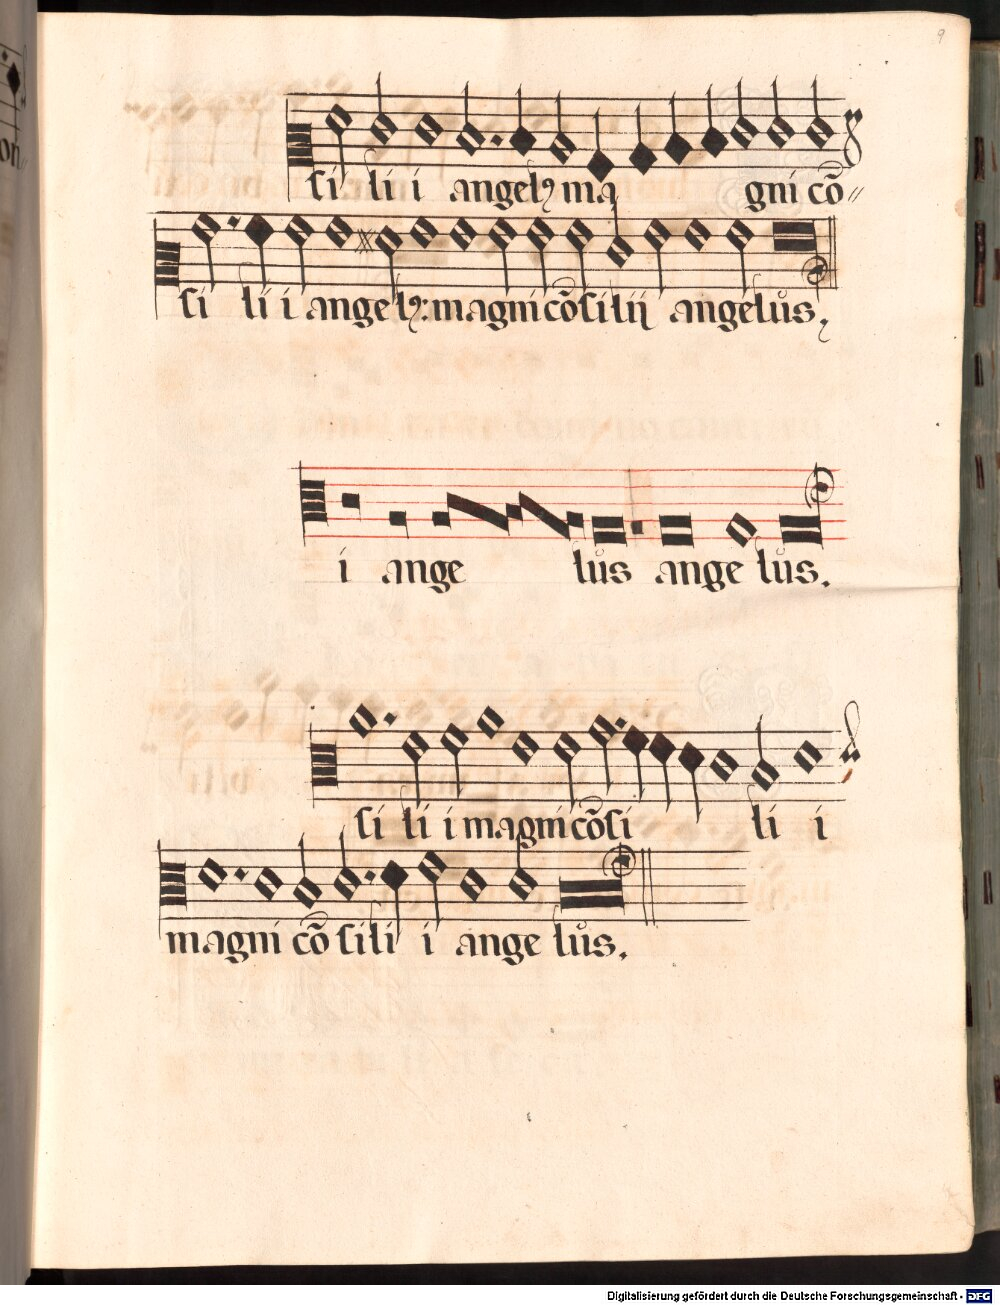 9
si li i angelꝯ ma gni cō
si li i angelꝯ: magni cōsilij angelus,
i ange lus ange lus.
si li i magni cōsi li i
magni cō sili i ange lus.
Digitalisierung gefördert durch die Deutsche Forschungsgemeinschaft - DFG